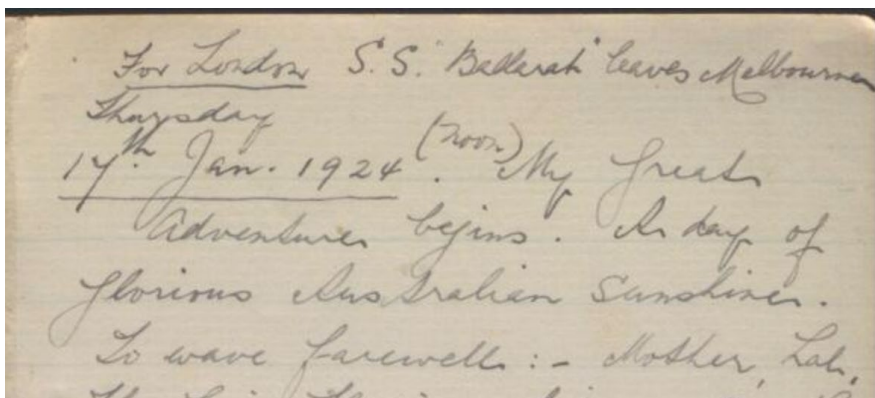 For London S.S. "Ballarat" leaves Melbourne
Thursday
17th. Jan. 1924 (noon). My Great
Adventure begins. A day of
glorious Australian Sunshine.
To wave farewell :- Mother,